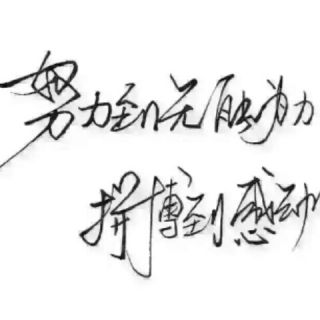 努力到无能为力
拼搏到感动